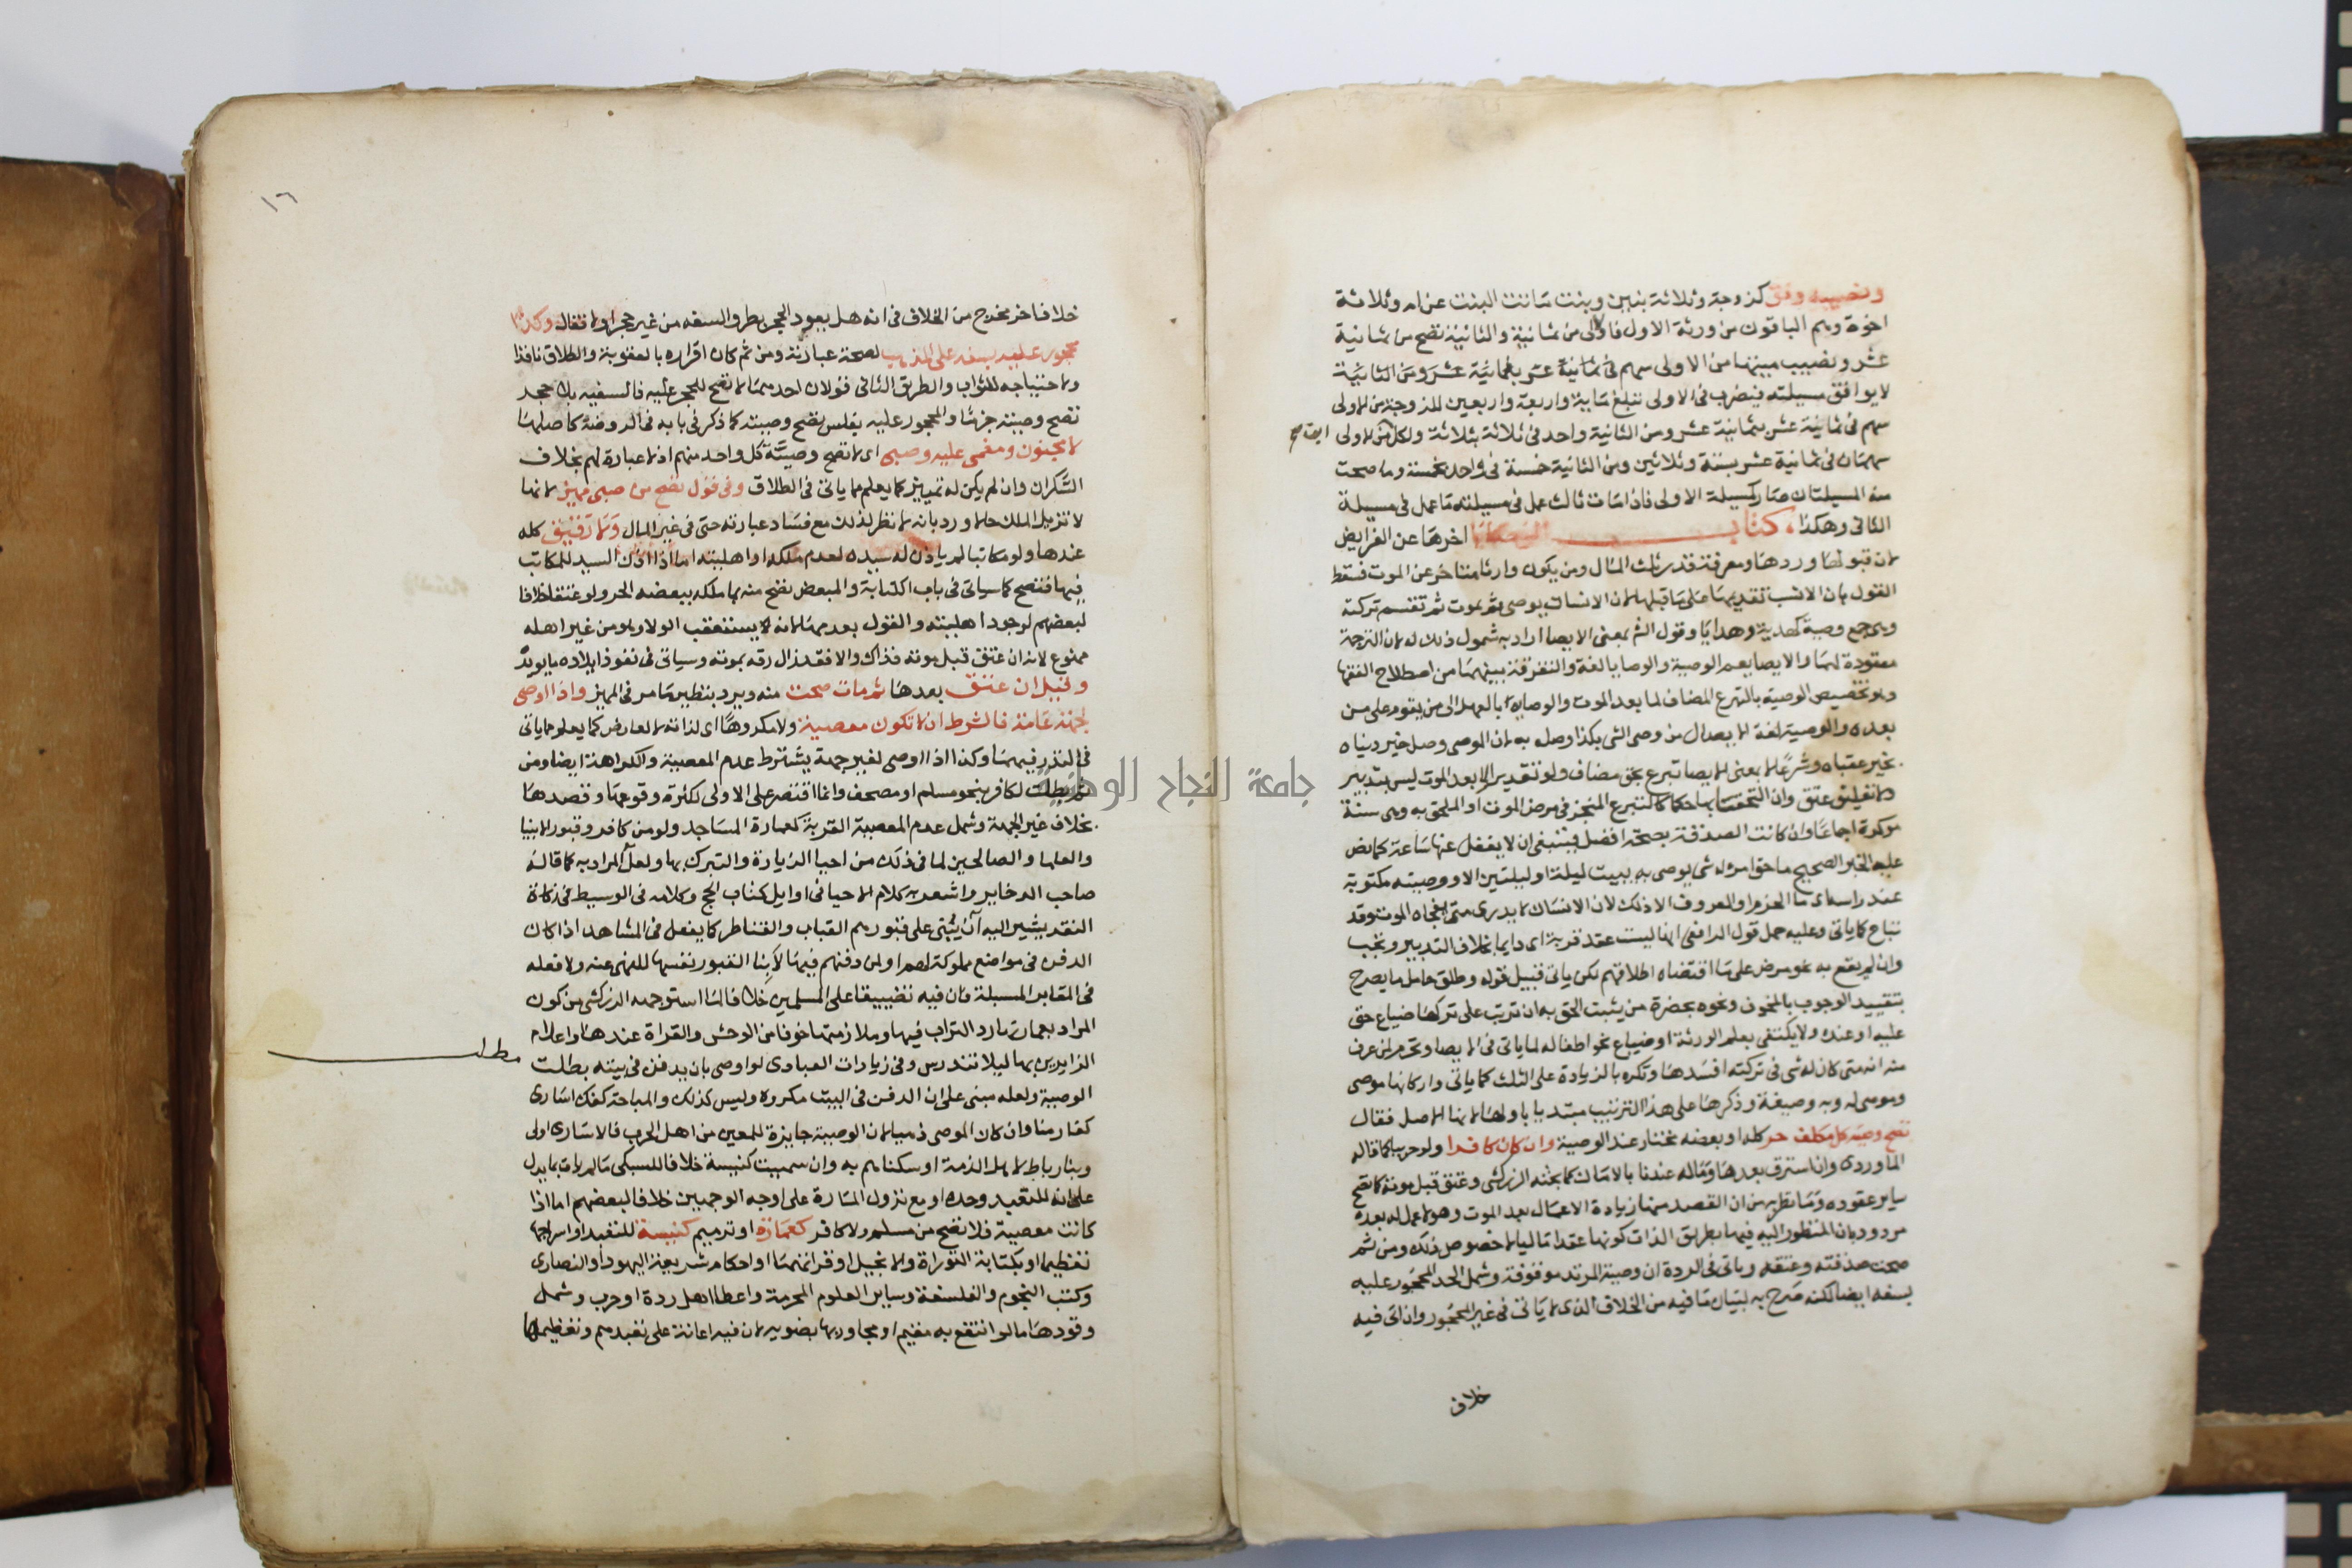 ونصيبه وفق كزوجة وثلاثة بنين وبنت ماتت البنت عن ام وثلاثة
اخوة وهم الباقون من ورثة الاول فالاولى من ثمانية والثانية تصح من ثمانية
عشر ونصيب ميتهما من الاولى سهم في ثمانية عشر بثمانية عشر ومن الثانية
لا يوافق مسيلته فيضرب في الاولى تبلغ ماية واربعة واربعين للزوجة من الاولى
سهم في ثمانية عشر بثمانية عشر ومن الثانية واحد في ثلاثة بثلاثة ولكل من الاولى
سهمان في ثمانية عشر بستة وثلاثين ومن الثانية خمسة في واحد بخمسة وما صحت
منه المسيلتان صار كمسيلة الاولى فاذا مات ثالث عمل في مسيلته ما عمل في مسيلة
الثاني وهكذا كتاب الوصايا اخرها عن الفرايض
لان قبولها وردها ومعرفة قدر ثلث المال ومن يكون وارثا متاخر عن الموت فسقط
القول بان الانسب تقديمها على ما قبلها لان الانسان يوصى ثم يموت ثم تقسم تركته
وهي جمع وصية كهدية وهدايا وقول الش بمعنى الايصا اراد به شمول ذلك له لان الترجمة
معقودة لهما والايصا يعم الوصية والوصايا لغة والتفرقة بينهما من اصطلاح الفقها
وهو تخصيص الوصية بالتبرع المضاف لما بعد الموت والوصاية بالعهد الى من يقوم على من
بعده والوصية لغة الايصال من وصى الشي بكذا وصله به لان الموصى وصل خير دنياه
بخير عقباه وشرعا لا بمعنى الايصا تبرع بحق مضاف ولو تقديرا لما بعد الموت ليس بتدبير
ولا تعليق عتق وان التحقتا بها حكما كالتبرع المنجز في مرض الموت او الملحق به وهي سنة
موكدة اجماعا وان كانت الصدقة بصحة افضل فينبغى ان لا يغفل عنها ساعة كما نص
عليه الخبر الصحيح ما حق امرء له شي يوصى به يبيت ليلة او ليلتين الا ووصيته مكتوبة
عند راسه اى ما الحزم او المعروف الا ذلك لان الانسان لا يدرى متى يفجاه الموت وقد
تباح كما ياتى وعليه حمل قول الرافعى انها ليست عقد قربة اى دايما بخلاف التدبير وتجب
وان لم يقع به نحو مرض على ما اقتضاه اطلاقهم لكن ياتى قبيل قوله وطلق حامل ما يصرح
بتقييد الوجوب بالمخوف ونحوه بحضرة من يثبت الحق به ان ترتب على تركها ضياع حق
عليه او عنده ولا يكتفى بعلم الورثة او ضياع نحو اطفاله لما ياتى في الايصا وتحرم لمن عرف
منه انه متى كان له شي في تركته افسدها وتكره بالزيادة على الثلث كما ياتى واركانها موصى
وموصى له وبه وصيغة وذكرها على هذا الترتيب مبتديا باولها لانها الاصل فقال
تصح وصية كل مكلف حر كله او بعضه مختار عند الوصية وان كان كافرا ولو حربيا كما قاله
الماوردى وان استرق بعدها وماله عندنا بالامان كما بحثه الزركشى وعتق قبل موته كما تصح
ساير عقوده وما نظر به من ان القصد منها زيادة الاعمال بعد الموت وهو لا عمل له بعده
مردود بان المنظور اليه فيها بطريق الذات كونها عقدا ماليا لا خصوص ذلك ومن ثم
صحت صدقته وعتقه وياتى في الردة ان وصية المرتد موقوفة وشمل الحد المحجور عليه
بسفه ايضا لكنه صرح به لبيان ما فيه من الخلاف الذى لا ياتى في غير المحجور وان اتى فيه
خلاف
١٦
خلافا اخر مخرج من الخلاف في انه هل يعود الحجر بطرو السفه من غير حجر اولا فقال وكذا
محجور عليه بسفه على المذهب لصحة عبارته ومن ثم كان اقراره بالعقوبة والطلاق نافذا
ولاحتياجه للثواب والطريق الثانى قولان احدهما لا تصح للحجر عليه فالسفيه بلا حجر
تصح وصيته جزما والمحجور عليه بفلس تصح وصيته كما ذكر في بابه في الروضة كاصلها
لا مجنون ومغمى عليه وصبى اى لا تصح وصية كل واحد منهم اذ لا عبارة لهم بخلاف
السكران وان لم يكن له تمييز كما يعلم مما ياتى في الطلاق وفى قول تصح من صبى مميز لانها
لا تزيل الملك حالا ورد بانه لا نظر لذلك مع فساد عبارته حتى في غير المال ولا رقيق كله
عندها ولو مكاتبا لم ياذن له سيده لعدم ملكه او اهليته اما اذا اذن السيد للمكاتب
فيها فتصح كما سياتى في باب الكتابة والمبعض تصح منه بما ملكه ببعضه الحر ولو عتقا خلافا
لبعضهم لوجود اهليته والقول بعدمها لانه لا يستعقب الولا وهو من غير اهله
ممنوع لانه ان عتق قبل موته فذاك والا فقد زال رقه بموته وسياتى في نفوذ ايلاده ما يويد
وقيل ان عتق بعدها ثم مات صحت منه ويرد بنظير ما مر في المميز واذا اوصى
لجهة عامة فالشرط ان لا تكون معصية ولا مكروها اى لذاته لا لعارض كما يعلم مما ياتى
في النذر فيهما وكذا اذا اوصى لغير جهة يشترط عدم المعصية والكراهة ايضا ومن
ثم بطلت لكافر بنحو مسلم او مصحف وانما اقتصر على الاولى لكثرة وقوعها وقصدها
بخلاف غير الجهة وشمل عدم المعصية القربة كعمارة المساجد ولو من كافر وقبور الانبيا
والعلما والصالحين لما في ذلك من احيا الزيارة والتبرك بها ولعل المراد به كما قاله
صاحب الدخاير واشعر به كلام الاحيا في اوايل كتاب الحج وكلامه في الوسيط في زكاة
النقد يشير اليه ان يبنى على قبورهم القباب والقناطر كما يفعل في المشاهد اذا كان
الدفن في مواضع مملوكة لهم او لمن دفنهم فيها لا بنا القبور نفسها للنهى عنه ولا فعله
في المقابر المسبلة فان فيه تضييقا على المسلمين خلافا لما استوجهه الزركشى من كون
المراد بعمارتها رد التراب فيها وملازمتها خوفا من الوحش والقراة عندها واعلام
الزايرين بها ليلا تندرس وفى زيادات العبادى لو اوصى بان يدفن في بيته بطلت
مطلب
الوصية ولعله مبنى على ان الدفن في البيت مكروه وليس كذلك والمباحة كفك اسارى
كفار منا وان كان الموصى ذميا لان الوصية جايزة للمعين من اهل الحرب فالاسارى اولى
وبنا رباط لاهل الذمة او سكناهم به وان سميت كنيسة خلافا للسبكى ما لم يات بما يدل
على انه للتعبد وحده او مع نزول المارة على اوجه الوجهين خلافا لبعضهم اما اذا
كانت معصية فلا تصح من مسلم ولا كافر كعمارة او ترميم كنيسة للتعبد او اسراجها
تعظيما او بكتابة التوراة والانجيل او قراتهما او احكام شريعة اليهود او النصارى
وكتب النجوم والفلسفة وساير العلوم المحرمة واعطا اهل ردة او حرب وشمل
وقودها ما لو انتفع به مقيم او مجاور بها بضويه لان فيه اعانة على تعبدهم وتعظيما لها
جامعة النجاح الوطنية